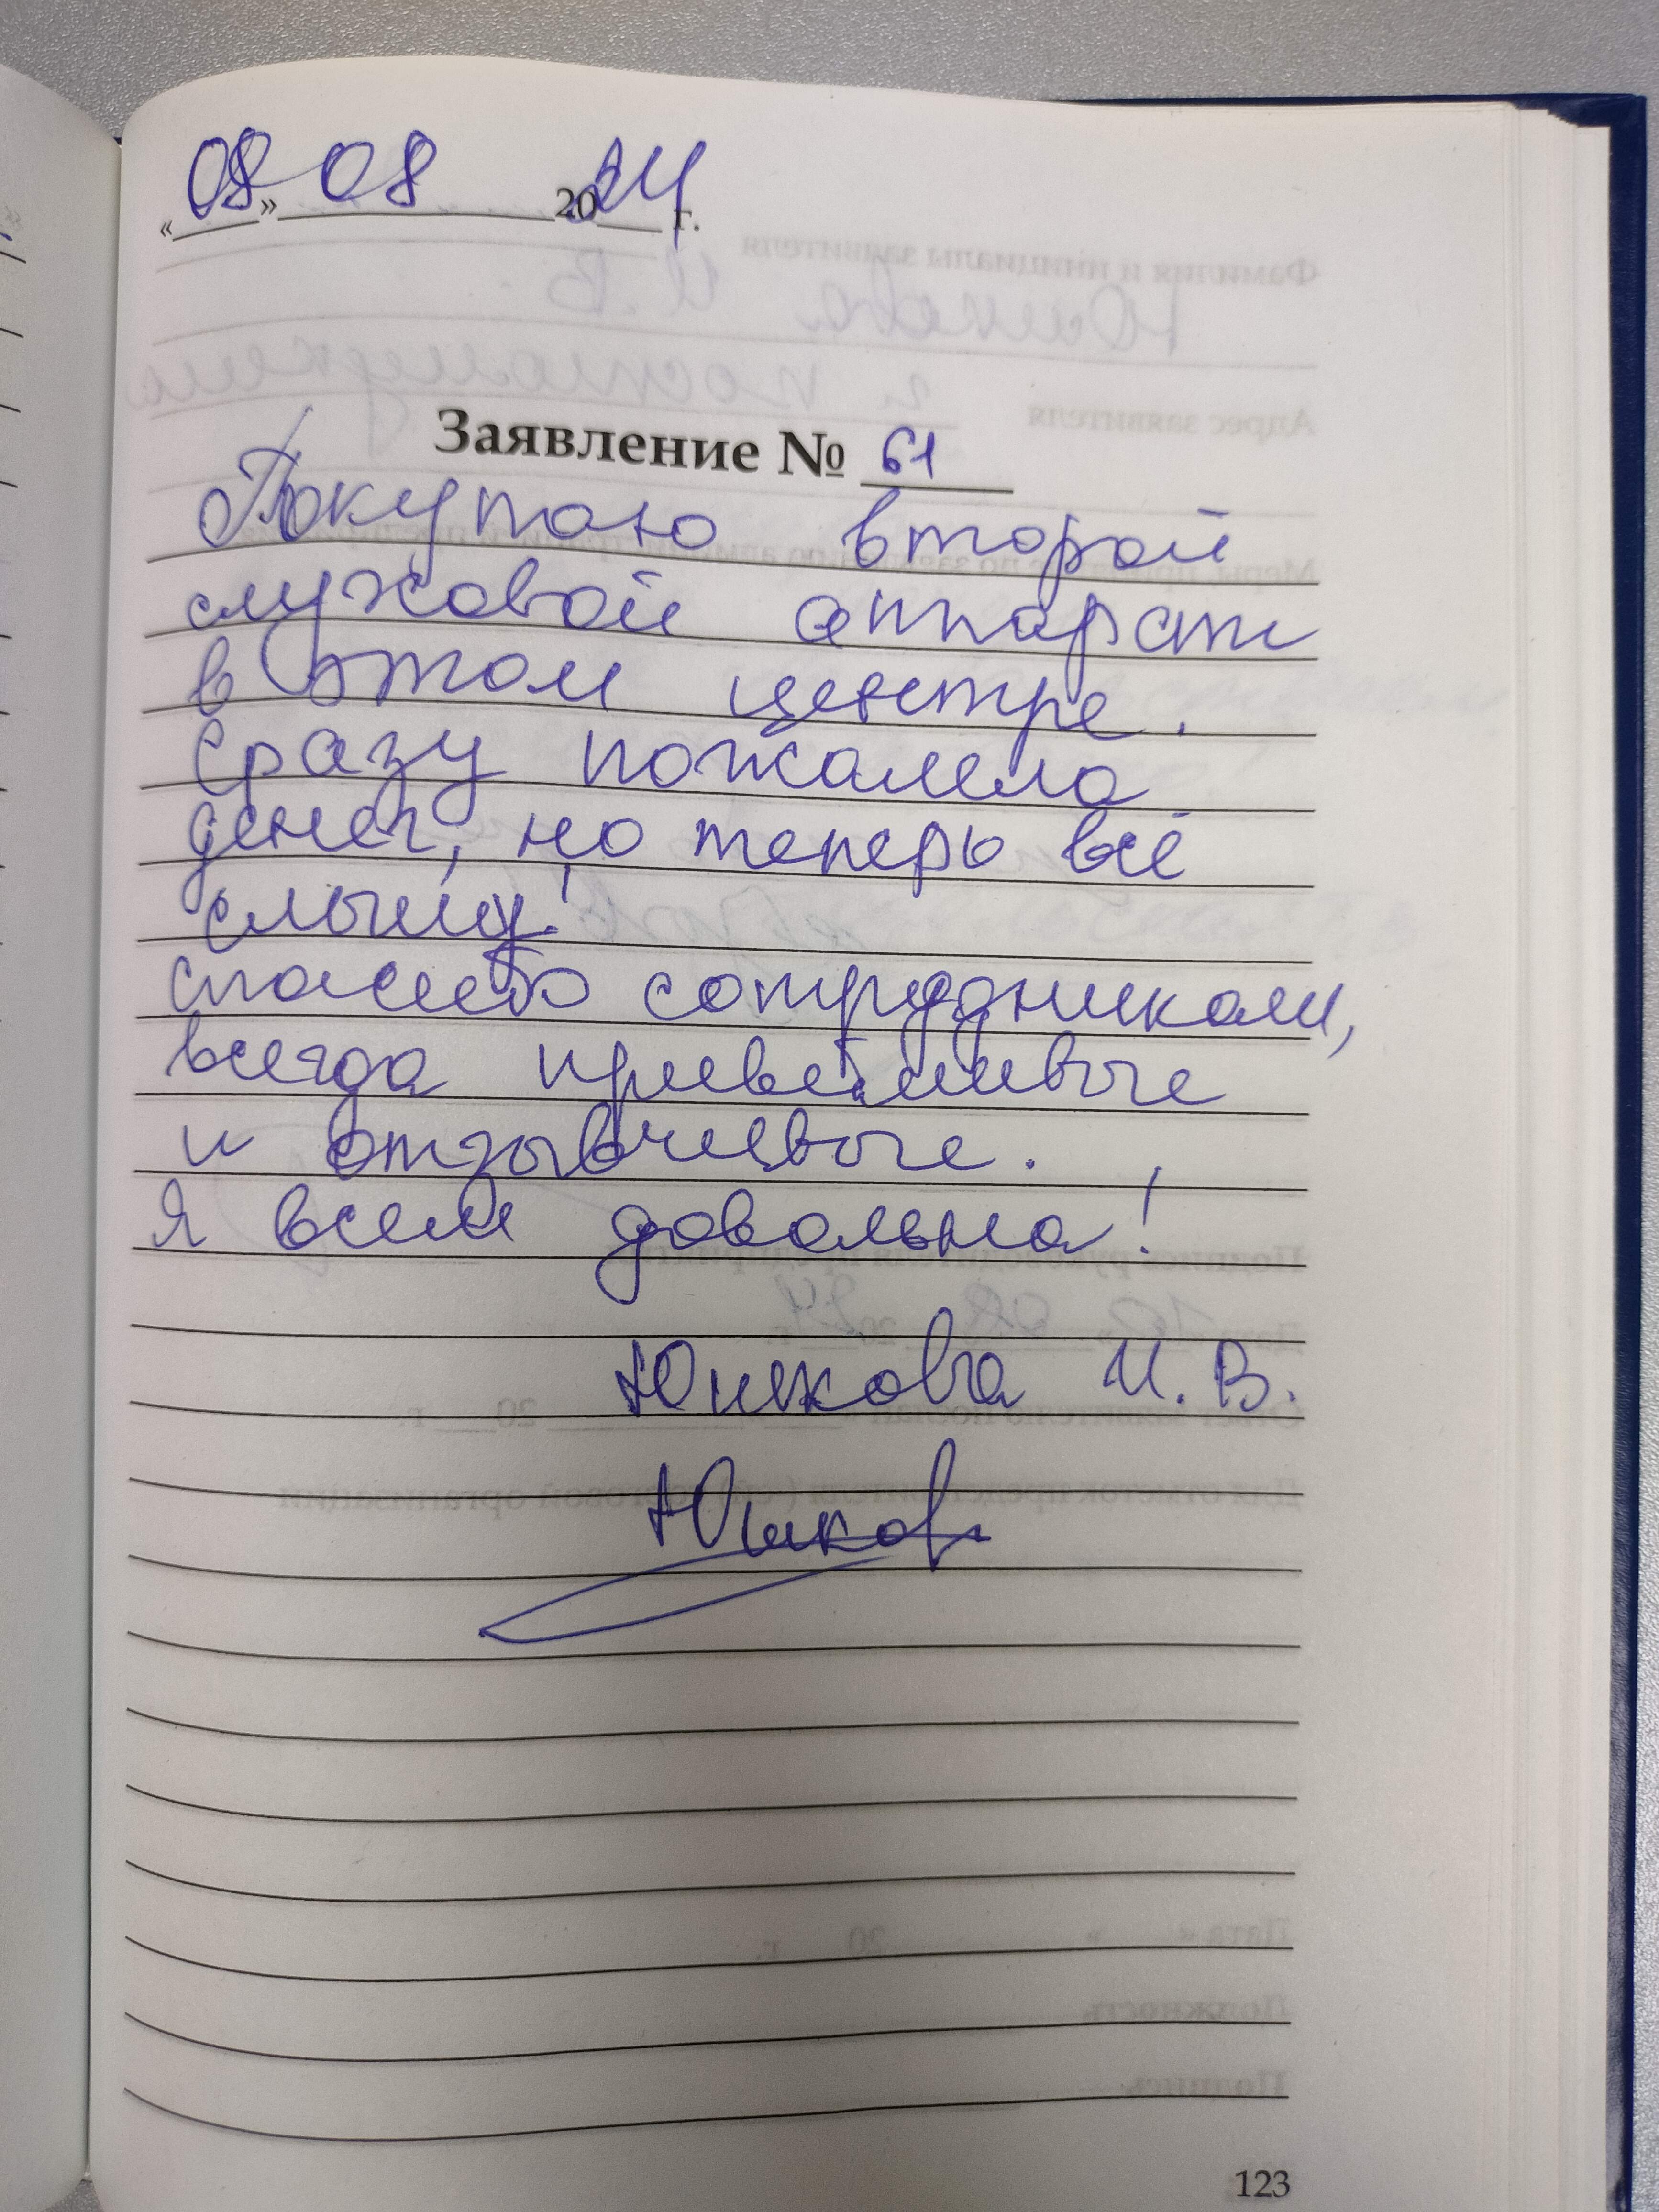 «08» 08 2024 г.
Заявление № 61
Покупаю второй
слуховой аппарат
в этом центре.
Сразу пожалела
денег, но теперь всё
слышу!
спасибо сотрудникам,
всегда приветливые
и отзывчивые.
Я всем довольна!
Юшкова И. В.
Юшков
123